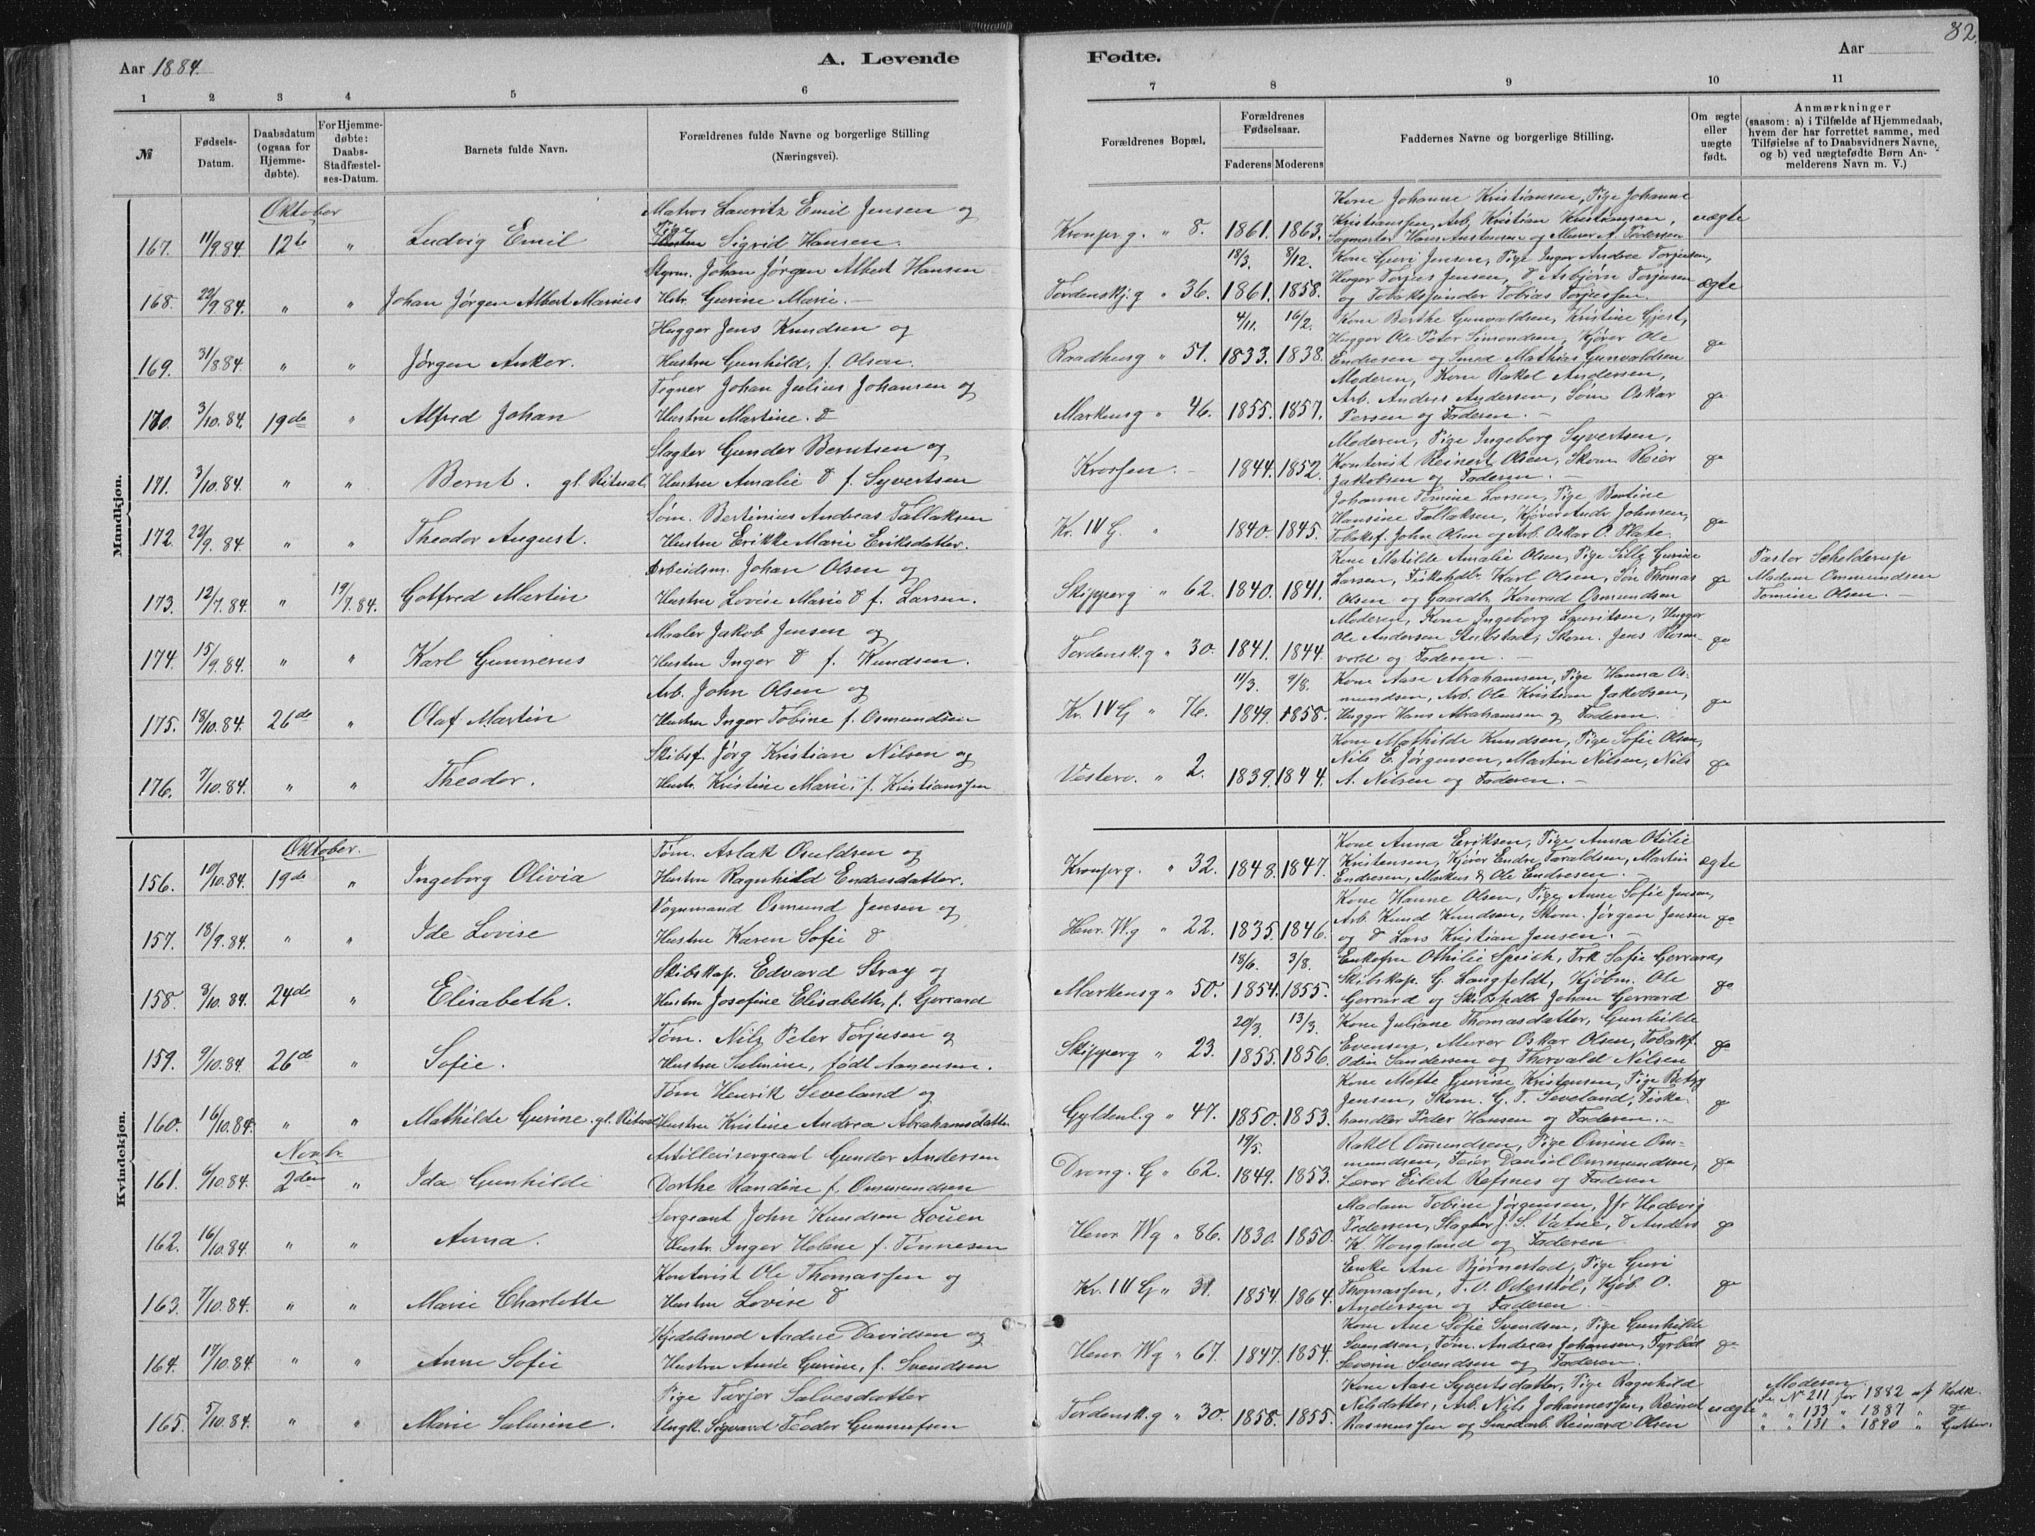 82.
Aar 1884. A. Levende Fødte. Aar
1 2 3 4 5 6 7 8 9 10 11
№ Fødsels-Datum. Daabsdatum (ogsaa for Hjemmedøbte). For Hjemmedøbte: Daabs-Stadfæstelses-Datum. Barnets fulde Navn. Forældrenes fulde Navne og borgerlige Stilling (Næringsvei). Forældrenes Bopæl. Forældrenes Fødselsaar. Faderens Moderens Faddernes Navne og borgerlige Stilling. Om ægte eller uægte født. Anmærkninger (saasom: a) i Tilfælde af Hjemmedaab, hvem der har forrettet samme, med Tilføielse af to Daabsvidners Navne, og b) ved uægtefødte Børn Anmelderens Navn m. V.)
Mandkjøn.
Oktober
Matros Lauritz Emil Jensen og Kone Johanne Kristiansen, Pige Johanne
167. 11/9 84. 12te " Ludvig Emil Pige Sigrid Hansen. Kronprg. " 8. 1861. 1863. Kristianssen, Arb. Kristian Kristiansen, uægte
og Murer A. Pedersen
Styrm. Johan Jørgen Albert Hansen 18/3. 8/12. Kone Guri Jensen, Pige Inger Andrea Torjusen,
168. 22/9 84. " " Johan Jørgen Albert Marius Hstr. Gurine Marie. — Tordenskj.g " 36. 1861. 1858. Hugger Torjus Jensen, d Asbjørn Torjusen ægte
og Tobaksspinder Tobias Torjussen.
Hugger Jens Knudsen og 4/11. 16/2. Kone Berthe Gunvaldsen, Kristine Gjest,
169. 31/8 84 " " Jørgen Anker. Hustru Gunhild, f. Olsen. Raadhusg " 51. 1833. 1838. Hugger Ole Peter Simondsen, Kjører Ole do
Endresen og Smed Mathias Gunvaldsen
Tegner Johan Julius Johansen og Moderen, Kone Rakel Andersen,
170. 3/10 84. 19de " Alfred Johan Hustru Martine. d Markensg " 46. 1855. 1857. Arb. Andres Andersen, Søm Oskar do
Persen og Faderen. —
Slagter Gunder Berntsen og Moderen, Pige Ingeborg Syvertsen,
171. 3/10 84. " " Bernt. gl. Ritual. Hustru Amalie d f. Syvertsen Krossen. — 1844. 1852. Kontorist Reinert Olsen, Skom Reier do
Jakobsen og Faderen. —
Søm. Bertinius Andreas Tallaksen Johanne Tomine Larsen, Pige Bertine
172 29/9. 84 " " Theodor August. Hustru Erikke Marie Eriksdatter. Kr. IV G. " 1840. 1845. Hansine Tallaksen, Kjører Andr Johnsen, do
Tobaksf. John Olsen og Arb. Oskar O. Flate.
Arbeidsm. Johan Olsen og Kone Matilde Amalie Olsen, Pige Silly Gurine Pastor Schelderup
173. 12/7. 84. " 19/7. 84. Gotfred Martin Hustru Lovise Marie d f. Larsen. Skipperg " 62. 1840. 1841. Larsen, Fiskehdlr. Karl Olsen, Søn Thomas do Madam Ommundsen
Olsen og Gaardbr. Konrad Osmundsen Tomine Olsen. —
Maaler Jakob Jensen og Moderen, Kone Ingeborg Lauritsen, Hugger
174. 15/9. 84. " " Karl Gunnerus Hustru Inger d f. Knudsen. Tordensk.g " 30. 1841. 1844 Ole Andersen Stubstad, Skom. Jens Rosen- do
vold og Faderen. —
Arb. John Olsen og 11/3. 9/8. Kone Aase Abrahamsen, Pige Hanna Os-
175. 18/10. 84. 26de " Olaf Martin Hustru Inger Tobine f. Osmundsen Kr. IV G " 76. 1849. 1858. mundsen, Arb. Ole Kristian Jakobsen, do
Hugger Hans Abrahamsen og Faderen.
Skibsf. Jørg Kristian Nilsen og Kone Mathilde Knudsen, Pige Sofie Olsen,
176. 7/10. 84. " " Theodor. Hustr. Kristine Marie, f. Kristianssen Vesterv. " 2. 1839. 1844. Nils E. Jørgensen, Martin Nilsen, Nils do
A. Nilsen og Faderen. —
Kvindekjøn.
Oktober.
Tøm. Aslak Osuldsen og Kone Anna Eriksen, Pige Anna Otilie
156. 10/10. 84. 19de " Ingeborg Olivia Hustru Ragnhild Endresdatter. Kronprg. " 32. 1848. 1847. Kristensen, Kjører Endre Taraldsen, Martin ægte
Endresen, Markus & Ole Endresen.
Vognmand Osmund Jensen og Kone Hanne Olsen, Pige Anne Sofie Jensen,
157. 18/9. 84. " " Ide Lovise Hustru Karen Sofie d Henr. W.g " 22. 1835. 1846. Arb. Knud Knudsen, Skom. Jørgen Jensen do
og d Lars Kristian Jensen. —
Skibskap. Edvard Stray og 18/6. 3/8. Enkefru Othilie Speich, Frk Sofie Gerrard,
158. 8/10. 84. 24de " Elisabeth. Hustru Josefine Elisabeth, f. Gerrard Markensg " 50. 1854. 1855. Skibskap. G. Langfeldt, Kjøbm. Ole do
Gerrard og Skibshdlr Johan Gerrard
Tøm. Nils Peter Torjusen og 20/3. 13/3. Kone Juliane Thomasdatter, Gunhilde
159. 9/10. 84. 26de " Sofie. Hustru Salmine, født Aanensen. Skipperg " 23. 1855. 1856. Evensen, Murer Oskar Olsen, Tobakf. do
Odin Sandersen og Thorvald Nilsen
Tøm Henrik Seveland og Kone Mette Gurine Kristensen, Pige Betzy
160. 16/10. 84. " " Mathilde Gurine. gl. Ritual Hustru Kristine Andera Abrahamsdatter Gyldenl.g " 47. 1850. 1853. Jensen, Skom. G. T. Seveland, Fiske- do
handler Peder Hansen og Faderen. —
Novbr
Artillerisergeant Gunder Andersen 19/5. Rakel Omundsen, Pige Omine Om-
161. 6/10. 84. 2den " Ida Gunhilde Dorthe Randine f. Ommundsen Drong. G " 62. 1849. 1853. mundsen, Feier Daniel Ommundsen, do
Lærer Eilert Refsnes og Faderen
Sergeant John Knudsen Louen Madam Tobine Jørgensen, Jfr Hedevig
162. 16/10. 84. " " Anna. Hustr. Inger Helene f. Tønnesen Henr. Wg " 86. 1830. 1850. Pedersen, Slagter J. S. Vatne, d Anders do
K Hougland og Faderen.
Kontorist Ole Thomassen og Enke Ane Bjørnestad, Pige Guri
163. 7/10. 84. " " Marie Charlotte Hustru Lovise d Kr. IV G " 31. 1854. 1864. Thomassen, T. O. Oderstøl, Kjøb. O. do
Andersen og Faderen.
Kjedelsmed Andrie Davidsen og Kone Ane Sofie Svendsen, Pige Gunhilde
164. 17/10. 84. " " Anne Sofie Hustru Anne Gurine, f. Svendsen Henr. Wg " 67. 1847. 1854. Svendsen, Tøm. Andreas Johansen, Fyrbød do
Severin Svendsen og Faderen.
Pige Tarjer Salvesdatter Kone Aase Syvertsdatter, Pige Ragnhild Moderen.
165. 5/10. 84. " " Marie Salmine. Ungk. Sigvard Teodor Gunnufsen Tordensk.g " 30. 1858. 1855. Nilsdatter, Arb. Nils Johannessen, Reinert uægte Se № 211 for 1882 af Kvdk.
Rasmussen og Smedarb. Reinard Olsen " " 133 " 1887 " do
" " 131 " 1890 " Gutter.